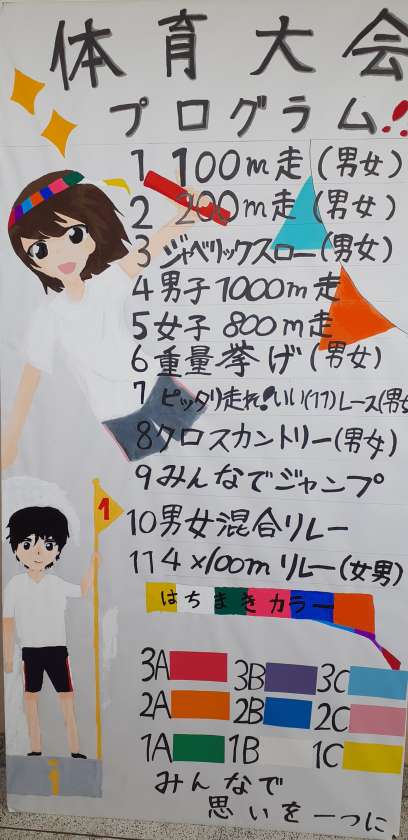 体育大会
プログラム!!
1 100m走(男女)
2 200m走(男女)
3 ジャベリックスロー(男女)
4 男子1000m走
5 女子800m走
6 重量挙げ(男女)
7 ピッタリ走れ!いい(11)レース(男女
8 クロスカントリー(男女)
9 みんなでジャンプ
10 男女混合リレー
11 4×100mリレー(女男)
はちまきカラー
3A 3B 3C
2A 2B 2C
1A 1B 1C
みんなで
思いを一つに
1
1